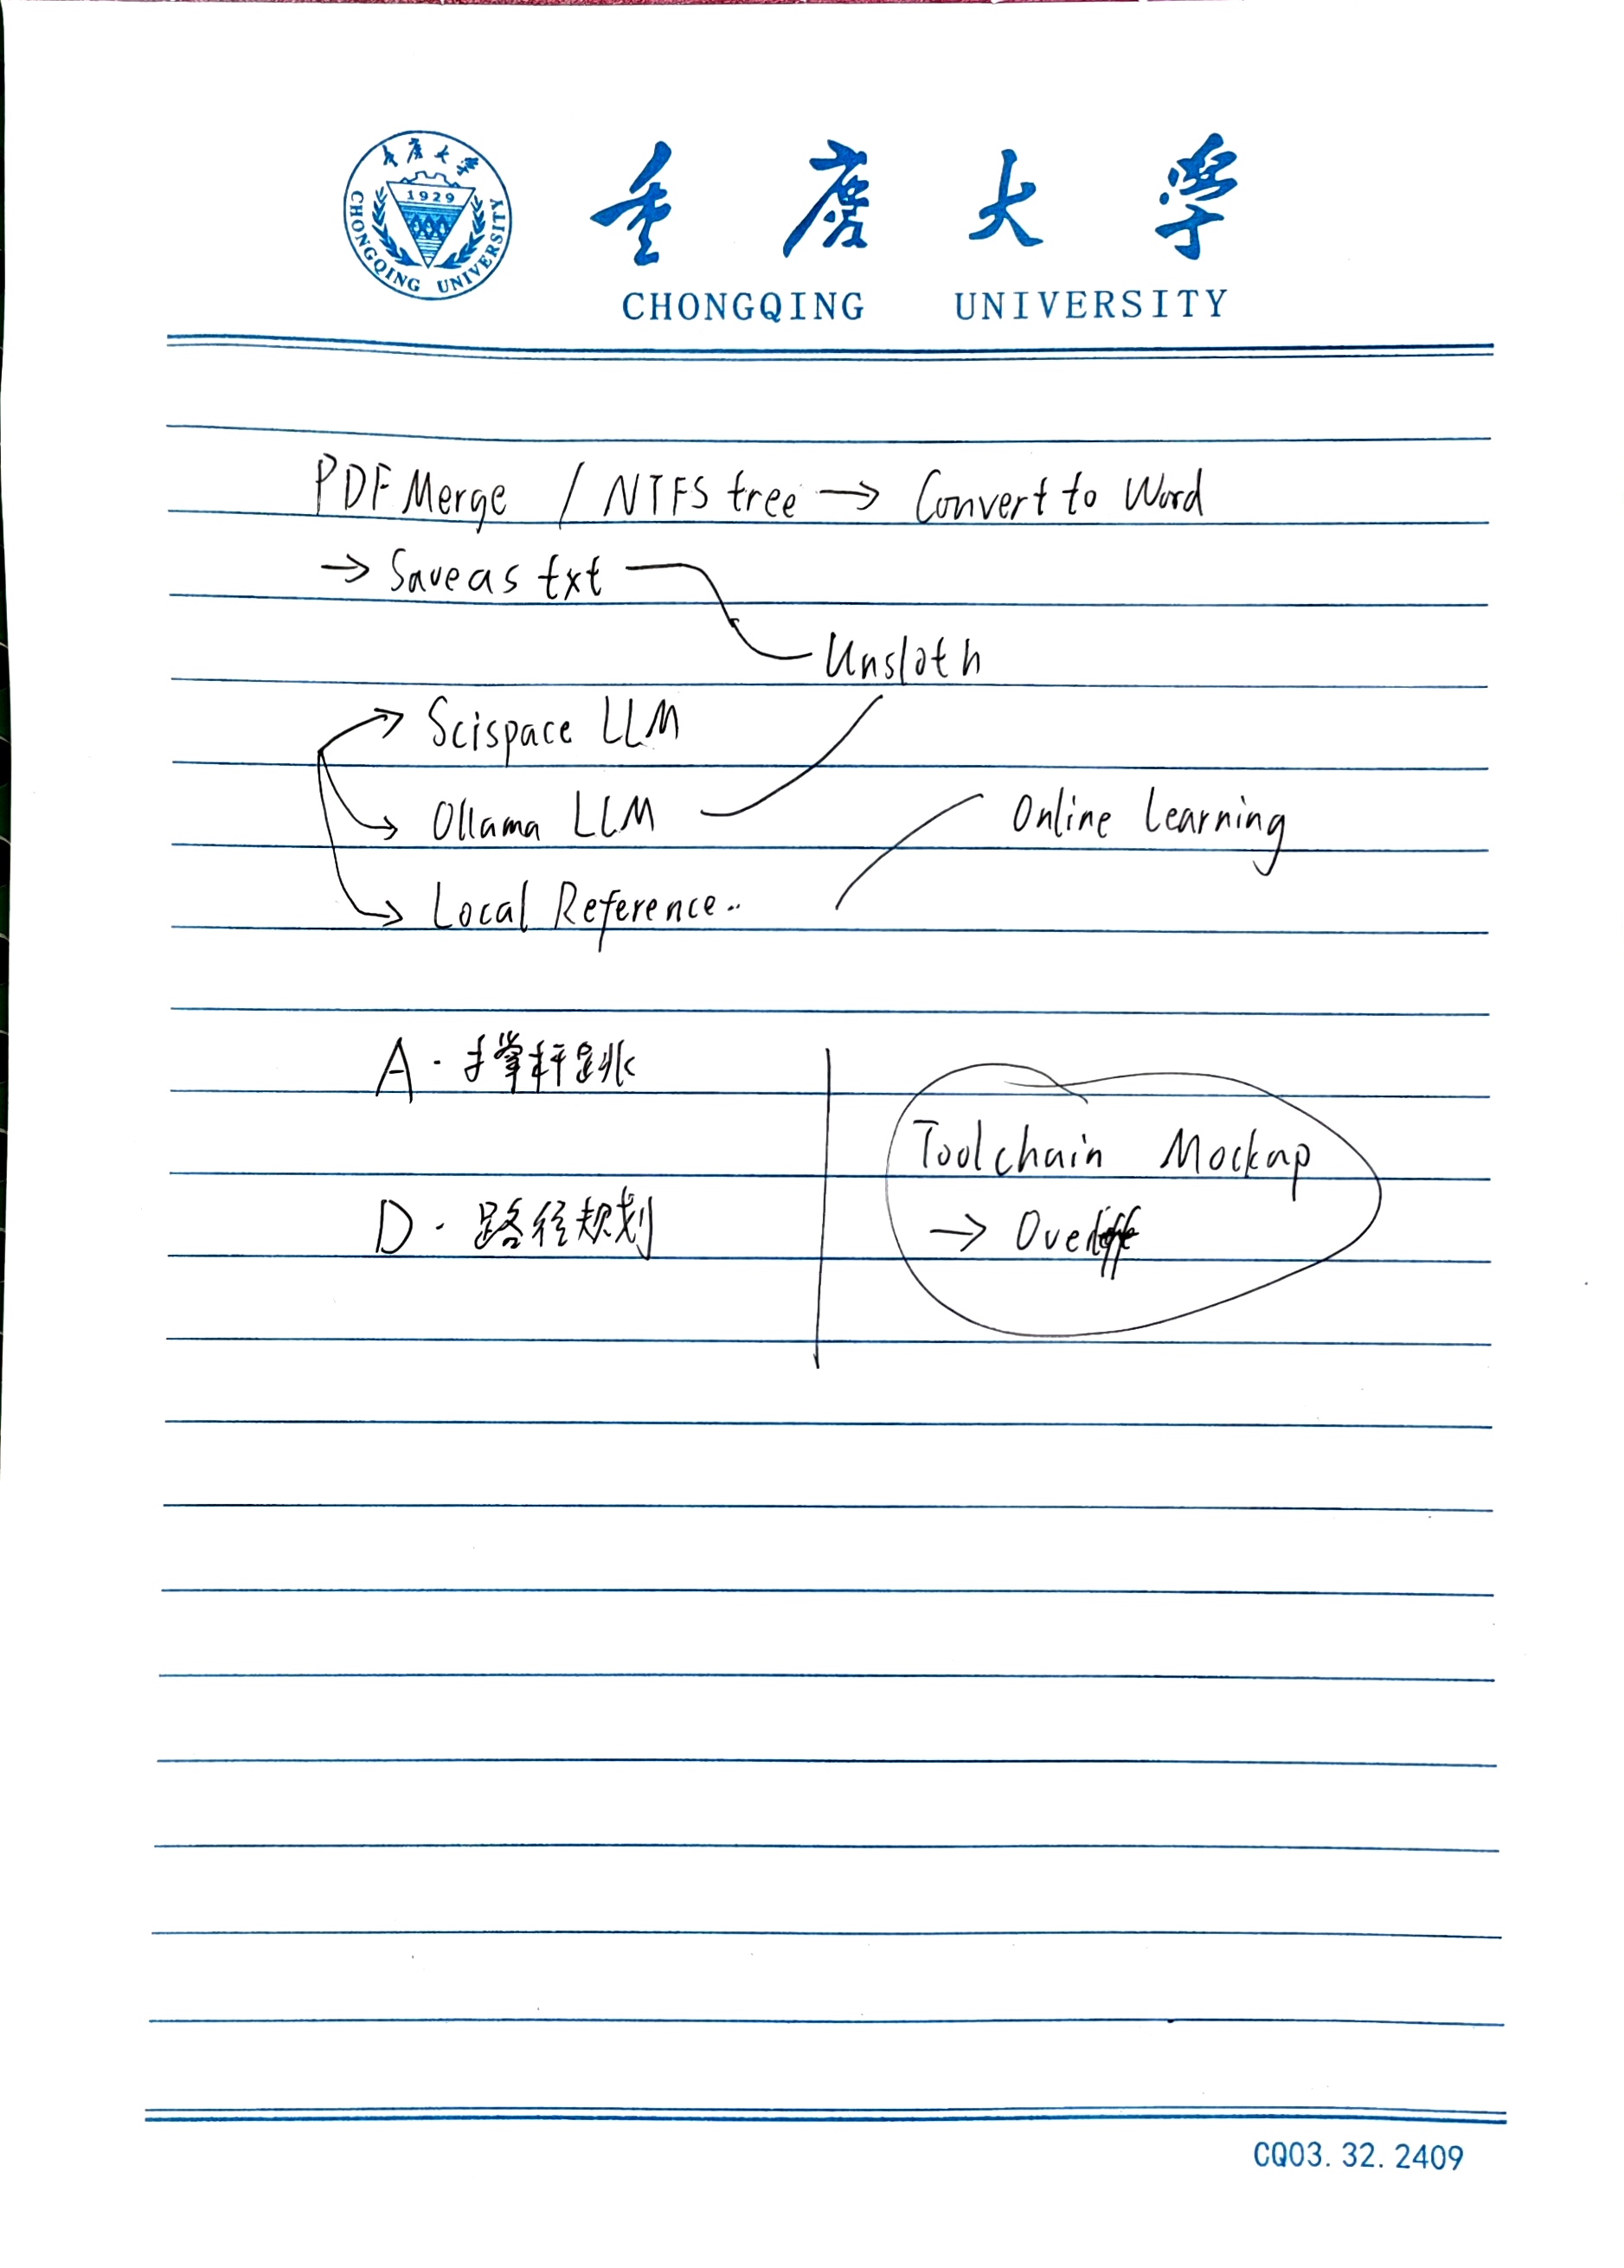 重庆大学
1929
CHONGQING UNIVERSITY
重庆大学
CHONGQING UNIVERSITY
PDF Merge / NTFS tree → Convert to Word
→ Save as txt
Unsloth
Scispace LLM
Ollama LLM
Online Learning
Local Reference..
A · 撑杆跳
Toolchain Mockup
D · 路径规划
→
CQ03.32.2409